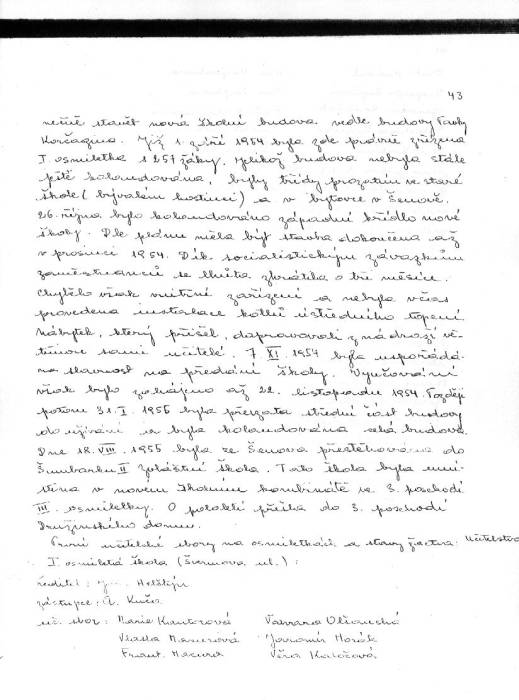 43
nečně stavět nová školní budova vedle budovy Pavky
Korčagina. Již 1. září 1954 byla zde právně zřízena
I. osmiletka s 257 žáky. Jelikož budova nebyla stále
ještě kolaudována, byly třídy prozatím ve staré
škole (bývalém hostinci) a v bytovce v Šenově.
26. října bylo kolaudováno západní křídlo nové
školy. Dle plánu měla být stavba dokončena až
v prosinci 1954. Dík socialistickým závazkům
zaměstnanců se lhůta zkrátila o tři měsíce.
Chybělo však vnitřní zařízení a nebyla včas
provedena instalace kotlů ústředního topení
Nábytek, který přišel, dopravovali z nádraží vět-
šinou sami učitelé. 7. XI. 1954 byla uspořádá-
na slavnost na předání školy. Vyučování
však bylo zahájeno až 22. listopadu 1954. Později
potom 31. I. 1955 byla převzata střední část budovy
do užívání a byla kolaudována celá budova.
Dne 18. VIII. 1955 byla ze Šenova přestěhována do
Šumbarku II zvláštní škola. Tato škola byla umí-
stěna v novém školním kombinátě ve 3. poschodí
III. osmiletky. O pololetí přešla do 3. poschodí
Družinského domu.
První učitelské sbory na osmiletkách a stavy žactva: Učitelstvo
I. osmiletá škola (Švermova ul.):
ředitel:
zástupce: A. Kučer
uč. sbor: Marie Kantorová Taťvana Olšanská
Vlasta Macurová Jaromír Horák
Frant. Macura Věra Kaložová